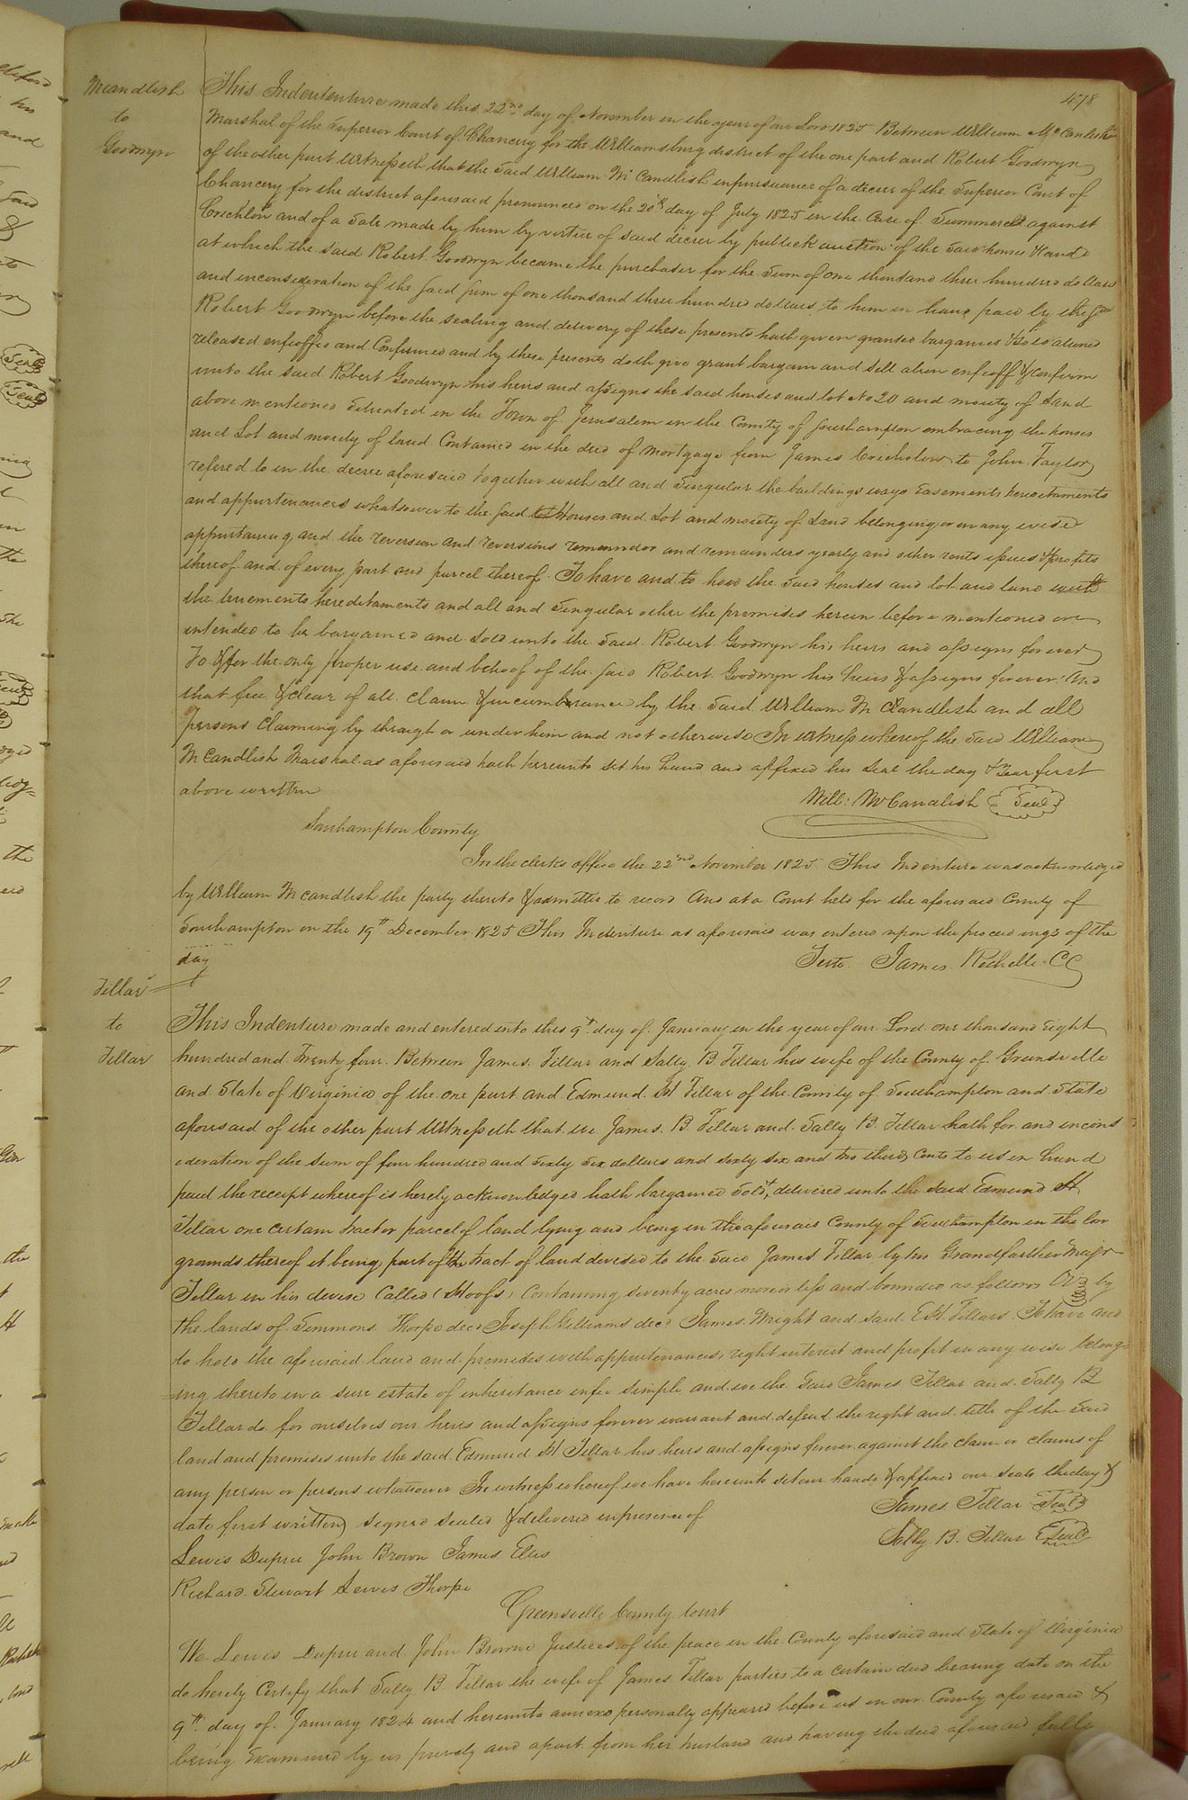 478
Mcandlish
to
Goodwyn
This Indententure made this 22nd day of November in the year of our Lord 1825 Between William McCandlish
Marshal of the Superior Court of Chancery for the Williamsburg district of the one part and Robert Goodwyn
of the other part Witnesseth that the said William McCandlish in pursuance of a decree of the Superior Court of
Chancery for the district aforesaid pronounced on the 20th day of July 1825 in the Case of Summerell against
Crichlow and of a Sale made by him by virtue of said decree by publick auction of the said houses & land
at which the said Robert Goodwyn became the purchaser for the Sum of One thousand three hundred dollars
and in consideration of the said sum of one thousand three hundred dollars to him in hand paid by the sd
Robert Goodwyn before the sealing and delivery of these presents hath given granted bargained & sold aliened
released enfeoffed and Confirmed and by these presents doth give grant bargain and sell alien enfeoff & confirm
unto the said Robert Goodwyn his heirs and assigns the said houses and lot No 20 and moiety of Land
above mentioned Situated in the Town of Jerusalem in the County of Southampton embracing the houses
and Lot and moiety of land Contained in the deed of mortgage from James Crichlow to John Taylor
refered to in the decree aforesaid together with all and Singular the buildings ways Easements hereditaments
and appurtenances whatsoever to the said Houses and Lot and moiety of Land belonging or in any wise
appurtaining and the reversion and reversions remainder and remainders yearly and other rents issues & profits
thereof and of every part and parcel thereof To have and to hold the said houses and lot and land with
the tenements hereditaments and all and Singular other the premises herein before mentioned or
intended to be bargained and Sold unto the Said Robert Goodwyn his heirs and assigns forever
To & for the only proper use and behoof of the said Robert Goodwyn his heirs & assigns forever And
that free & clear of all Claim & incumberance by the Said William McCandlish and all
persons Claiming by through or under him and not otherwise In witness whereof the said William
McCandlish Marshal as aforesaid hath hereunto set his hand and affixed his Seal the day & Year first
above written
Will: McCandlish Seal
Southampton County
In the clerks office the 22nd November 1825 This Indenture was acknowledged
by William Mcandlish the party thereto & admitted to record And at a Court held for the aforesaid County of
Southampton on the 19th December 1825 This Indenture as aforesaid was entered upon the proceedings of the
day
Teste James Rochelle CC
Tillar
to
Tillar
This Indenture made and entered into this 9th day of January in the year of our Lord one thousand Eight
hundred and Twenty four Between James Tillar and Sally B Tillar his wife of the County of Greensville
and State of Virginia of the one part and Edmund H Tillar of the County of Southampton and State
aforesaid of the other part Witnesseth that we James B Tillar and Sally B Tillar hath for and in cons
ideration of the Sum of four hundred and Sixty Six dollars and Sixty six and two thirds Cents to us in hand
paid the receipt whereof is hereby acknowledged hath bargained Sold & delivered unto the said Edmund H
Tillar one Certain tract or parcel of land lying and being in the aforesaid County of Southampton in the low
grounds thereof it being part of the tract of land devised to the said James Tillar by his Grandfarther Major
Tillar in his devise Called Containing Seventy acres more or less and bounded as follows Viz by
the lands of Simmons Thorpe decd Joseph Williams decd James Wright and said E H Tillars To have and
to hold the aforesaid land and premises with appurtenances right interest and profit in any wise belong
ing thereto in a sure estate of inheritance in fee Simple and we the Said James Tillar and Sally B
Tillar do for ourselves our heirs and assigns forever warrant and defend the right and title of the said
land and premises unto the said Edmund H Tillar his heirs and assigns forever against the claim or claims of
any person or persons whatsoever In witness whereof we have hereunto set our hands & affixed our Seals the day &
date first written
James Tillar Seal
Signed Sealed & delivered in presence of
Sally B. Tillar Seal
Lewis Dupree John Brown James Ellis
Richard Stewart Lewis Thorpe
Greensville County Court
We Lewis Dupree and John Browne Justices of the peace in the County aforesaid and State of Virginia
do hereby Certify that Sally B Tillar the wife of James Tillar parties to a certain deed bearing date on the
9th day of January 1824 and hereunto annexed personally appeared before us in our County aforesaid &
being Examined by us privily and apart from her husband and having the deed aforesaid fully